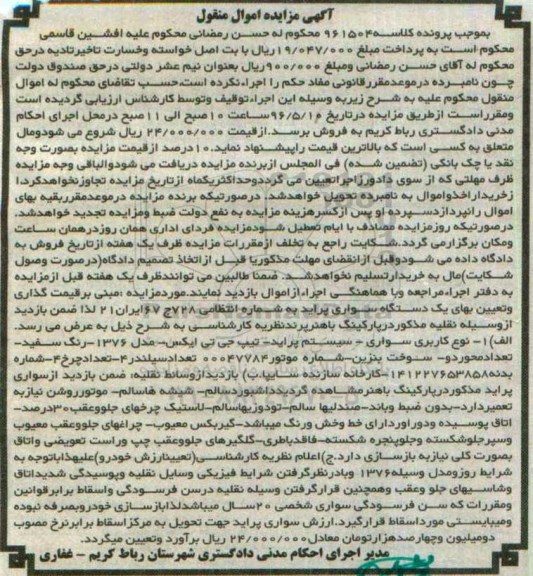 آگهی مزایده اموال منقول
بموجب پرونده کلاسه ۹۶۱۵۰۴ محکوم له حسن رمضانی محکوم علیه افشین قاسمی
محکوم است به پرداخت مبلغ ۱۹/۰۴۷/۰۰۰ ریال با بت اصل خواسته وخسارت تاخیرتادیه درحق
محکوم له آقای حسن رمضانی ومبلغ ۹۰۰/۰۰۰ ریال بعنوان نیم عشر دولتی درحق صندوق دولت
چون نامبرده درموعدمقررقانونی مفاد حکم را اجراءنکرده است،حسب تقاضای محکوم له اموال
منقول محکوم علیه به شرح زیربه وسیله این اجراءتوقیف وتوسط کارشناس ارزیابی گردیده است
ومقرراست ازطریق مزایده درتاریخ ۹۶/۵/۱۰ ساعت ۱۰ صبح الی ۱۱ صبح درمحل اجرای احکام
مدنی دادگستری رباط کریم به فروش برسد.ازقیمت ۲۴/۰۰۰/۰۰۰ ریال شروع می شودومال
متعلق به کسی است که بالاترین قیمت راپیشنهاد نماید.۱۰درصد ازقیمت مزایده بصورت وجه
نقد یا چک بانکی (تضمین شده) فی المجلس ازبرنده مزایده دریافت می شودوالباقی وجه مزایده
ظرف مهلتی که از سوی دادورزاجراتعیین می گرددوحداکثریکماه ازتاریخ مزایده تجاوزنخواهدکرد.ا
زخریداراخذواموال به نامبرده تحویل خواهدشد. درصورتیکه برنده مزایده درموعدمقرربقیه بهای
اموال رانپردازدسپرده او پس ازکسرهزینه مزایده به نفع دولت ضبط ومزایده تجدید خواهدشد.
درصورتیکه روزمزایده مصادف با ایام تعطیل شودمزایده فردای اداری همان روزدرهمان ساعت
ومکان برگزارمی گردد.شکایت راجع به تخلف ازمقررات مزایده ظرف یک هفته ازتاریخ فروش به
دادگاه داده می شودوقبل ازانقضای مهلت مذکوریا قبل ازاتخاذ تصمیم دادگاه(درصورت وصول
شکایت)مال به خریدارتسلیم نخواهدشد. ضمنا طالبین می توانندظرف یک هفته قبل ازمزایده
به دفتر اجراءمراجعه وبا هماهنگی اجراءازاموال بازدید نمایند.موردمزایده :مبنی برقیمت گذاری
وتعیین بهای یک دستگاه سواری پراید به شماره انتظامی ۷۲۸ج۶۷ایران۲۱ لذا ضمن بازدید
ازوسیله نقلیه مذکوردرپارکینگ باهنرپرندنظریه کارشناسی به شرح ذیل به عرض می رسد.
الف)۱- نوع کاربری سواری - سیستم پراید- تیپ جی تی ایکس- مدل ۱۳۷۶-رنگ سفید-
تعدادمحوردو- سوخت بنزین-شماره موتور۰۰۰۴۷۷۸۴ تعدادسیلندر۴-تعدادچرخ۴-شماره
بدنه۱۴۱۲۲۷۶۵۳۸۵۸-کارخانه سازنده سایپا.ب) بازدیدازوسائط نقلیه: ضمن بازدید ازسواری
پراید مذکوردرپارکینگ باهنرمشاهده گردیدداشبوردسالم- شیشه هاسالم- موتورروشن نیازبه
تعمیردارد-بدون ضبط وباند-صندلیها سالم-تودوزیهاسالم-لاستیک چرخهای جلووعقب۳۰درصد-
اتاق پوسیده ودوراوردارای خط وخش ورنگ میباشد-گیربکس معیوب- چراغهای جلووعقب معیوب
وسپرجلوشکسته وجلوپنجره شکسته-فاقدباطری-گلگیرهای جلووعقب چپ وراست تعویضی واتاق
بصورت کلی نیازبه بازسازی دارد.ج)اعلام نظریه کارشناسی(تعیین‌ارزش خودرو)علیهذاباتوجه به
شرایط روزومدل وسیله۱۳۷۶ وبادرنظرگرفتن شرایط فیزیکی وسایل نقلیه وپوسیدگی شدیداتاق
وشاسیهای جلو وعقب وهمچنین قرارگرفتن وسیله نقلیه درسن فرسودگی واسقاط برابرقوانین
ومقررات که سن فرسودگی سواری شخصی ۲۰سال میباشدلذابازسازی خودروبصرفه نبوده
ومیبایستی مورداسقاط قرارگیرد.ارزش سواری پراید جهت تحویل به مرکزاسقاط برابرنرخ مصوب
دومیلیون وچهارصدهزارتومان معادل۲۴/۰۰۰/۰۰۰ ریال برآورد وتعیین میگردد.
مدیر اجرای احکام مدنی دادگستری شهرستان رباط کریم - غفاری